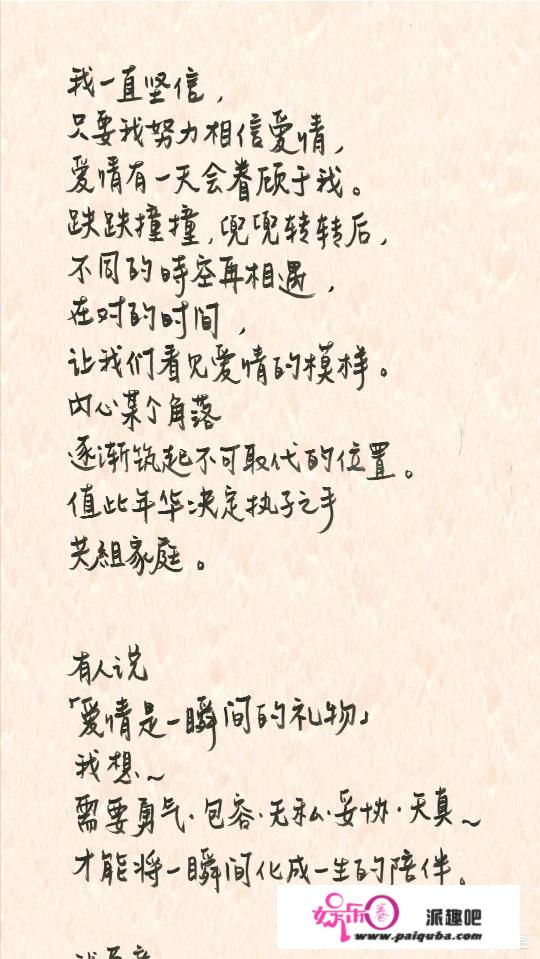 我一直坚信,
只要我努力相信爱情,
爱情有一天会眷顾于我。
跌跌撞撞,兜兜转转后,
不同的時空再相遇,
在对的时间,
让我们看见爱情的模样。
内心某个角落
逐渐筑起不可取代的位置。
值此年华决定执子之手
共組家庭。
有人说
「爱情是一瞬间的礼物」
我想~
需要勇气·包容·无私·妥协·天真~
才能将一瞬间化成一生的陪伴。
娱乐圈 派趣吧
www.paiquba.com